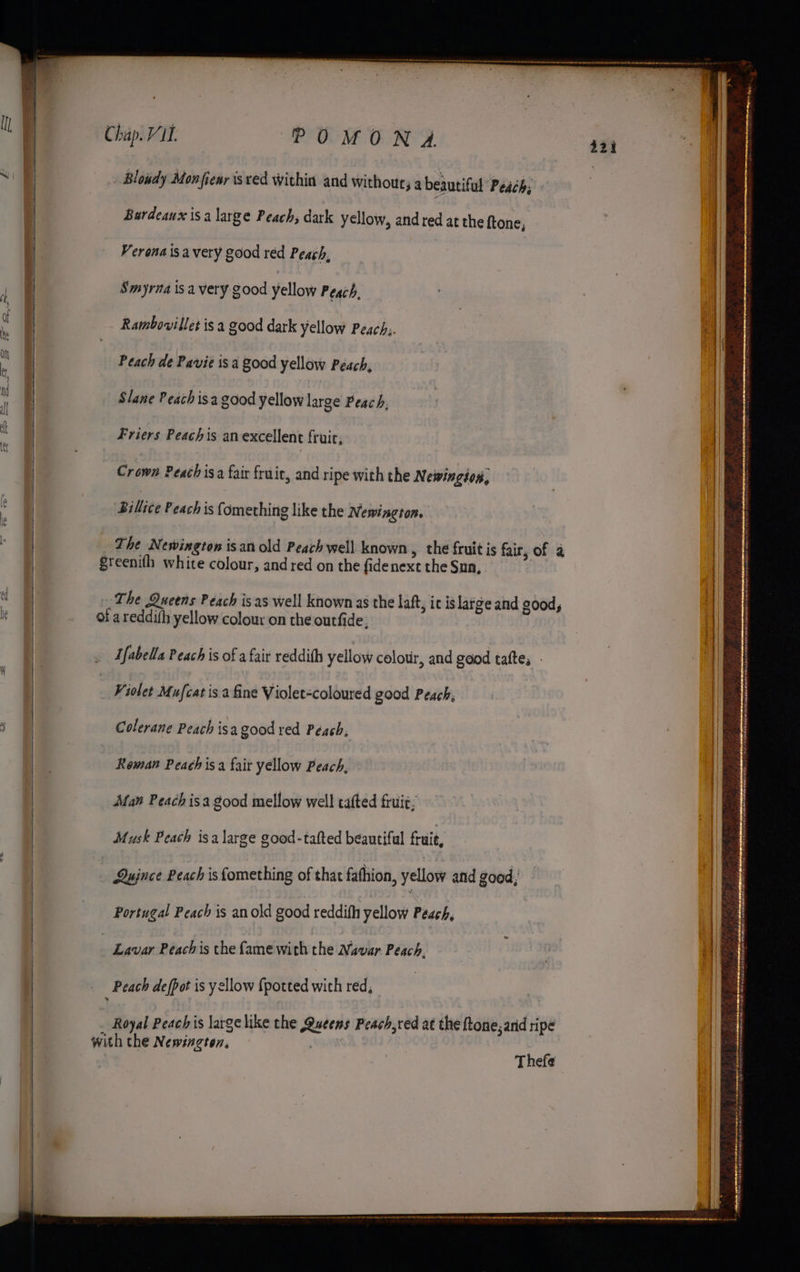 Chap. VII. POMONA 121
Bloudy Monſieur is red within and without, a beautiful Peach,
Burdeaux is a large Peach, dark yellow, and red at the ſtone,
Verona is a very good red Peach,
Smyrna is a very good yellow Peach,
Rambovillet is a good dark yellow Peach,
Peach de Pavie is a good yellow Peach,
Slane Peach is a good yellow large Peach,
Friers Peach is an excellent fruit,
Crown Peach is a fair fruit, and ripe with the Newington,
Billice Peach is ſomething like the Newington.
The Newington is an old Peach well known, the fruit is fair, of a
greeniſh white colour, and red on the ſide next the Sun,
The Queens Peach is as well known as the laſt, it is large and good,
of a reddiſh yellow colour on the outſide,
Iſabella Peach is of a fair reddiſh yellow colour, and good taſte,
Violet Muſcat is a fine Violet-coloured good Peach,
Colerane Peach is a good red Peach,
Roman Peach is a fair yellow Peach,
Man Peach is a good mellow well taſted fruit,
Musk Peach is a large good-taſted beautiful fruit,
Quince Peach is ſomething of that faſhion, yellow and good,
Portugal Peach is an old good reddiſh yellow Peach,
Lavar Peach is the ſame with the Navar Peach,
Peach deſpot is yellow ſpotted with red,
Royal Peach is large like the Queens Peach, red at the ſtone, and ripe
with the Newington.
Theſe